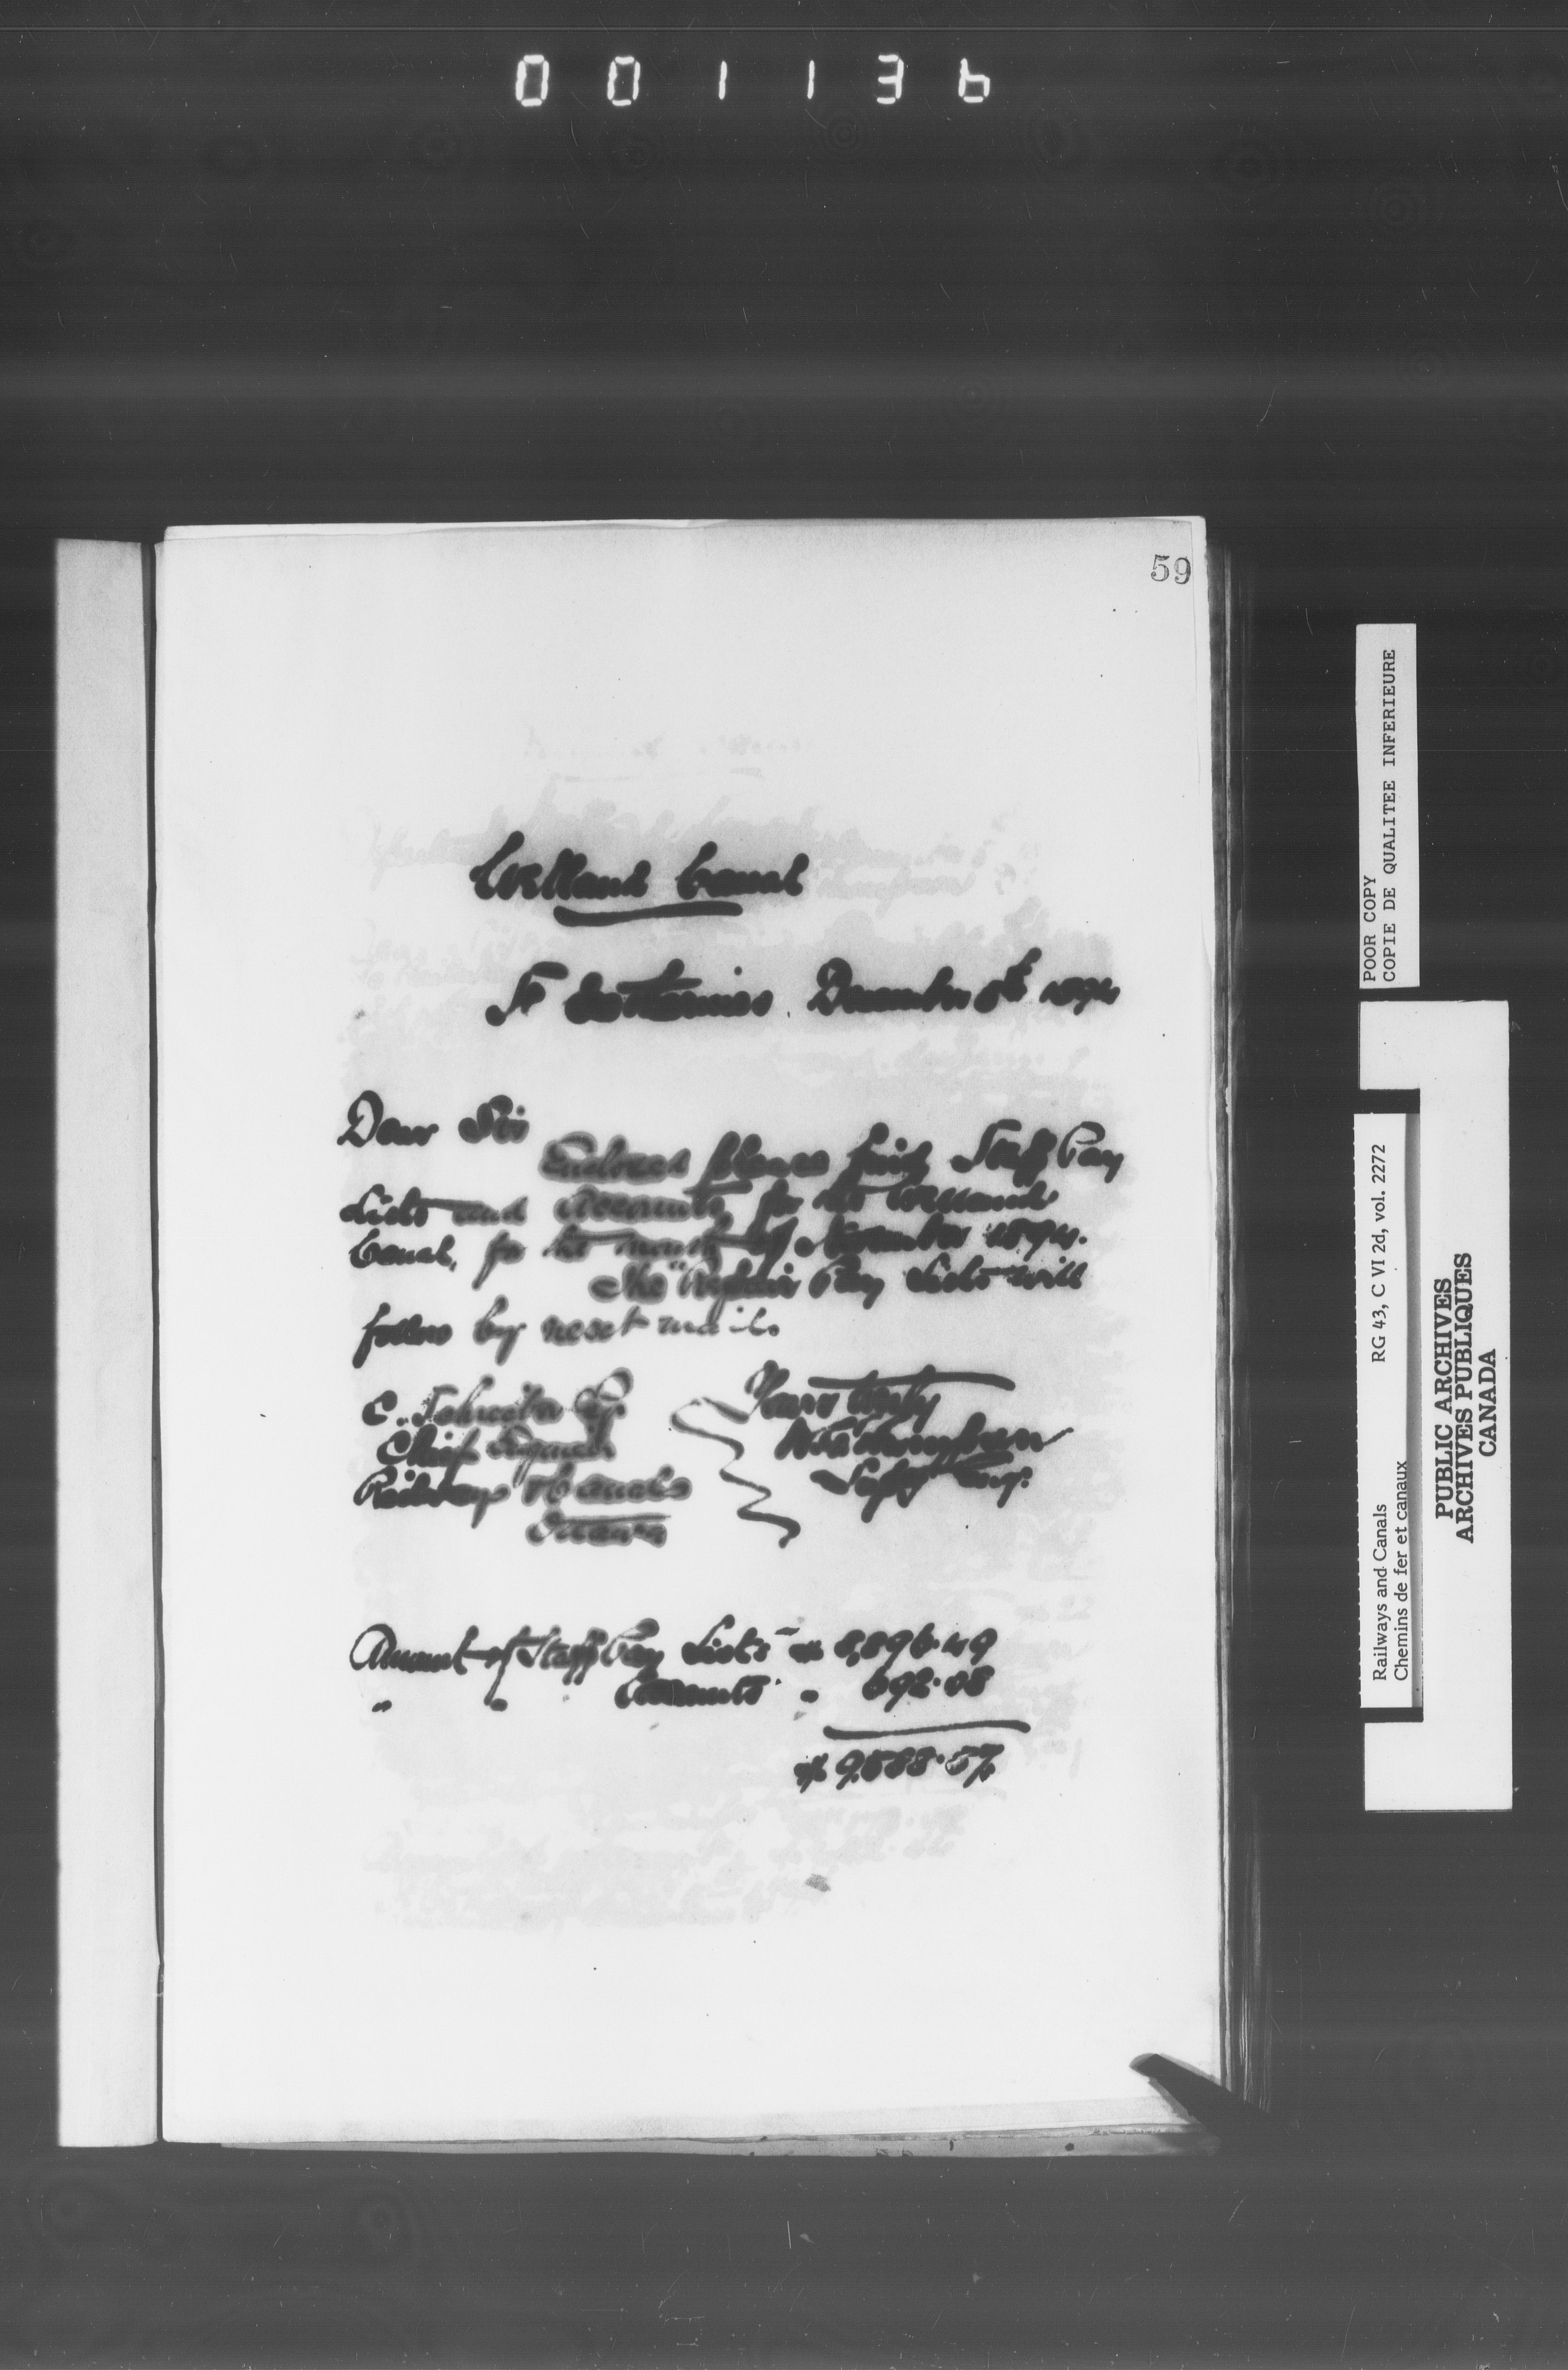 001136
59
Welland Canal
St Catharines. December 5th 1894
Dear Sir
Enclosed please find Staff Pay
Lists and Accounts for the Welland
Canal, for the month of November 1894.
The "Repair Pay Lists will
follow by next mail.
Yours truly
W G Thompson
Supt Eng.
C. Schreiber Esq
Chief Engineer
Railways & Canals
Ottawa
Amount of Staff Pay Lists $ 8,896.49
" " Accounts " 692.08
$ 9,588.57
POOR COPY
COPIE DE QUALITEE INFERIEURE
Railways and Canals RG 43, C VI 2d, vol. 2272
Chemins de fer et canaux
PUBLIC ARCHIVES
ARCHIVES PUBLIQUES
CANADA